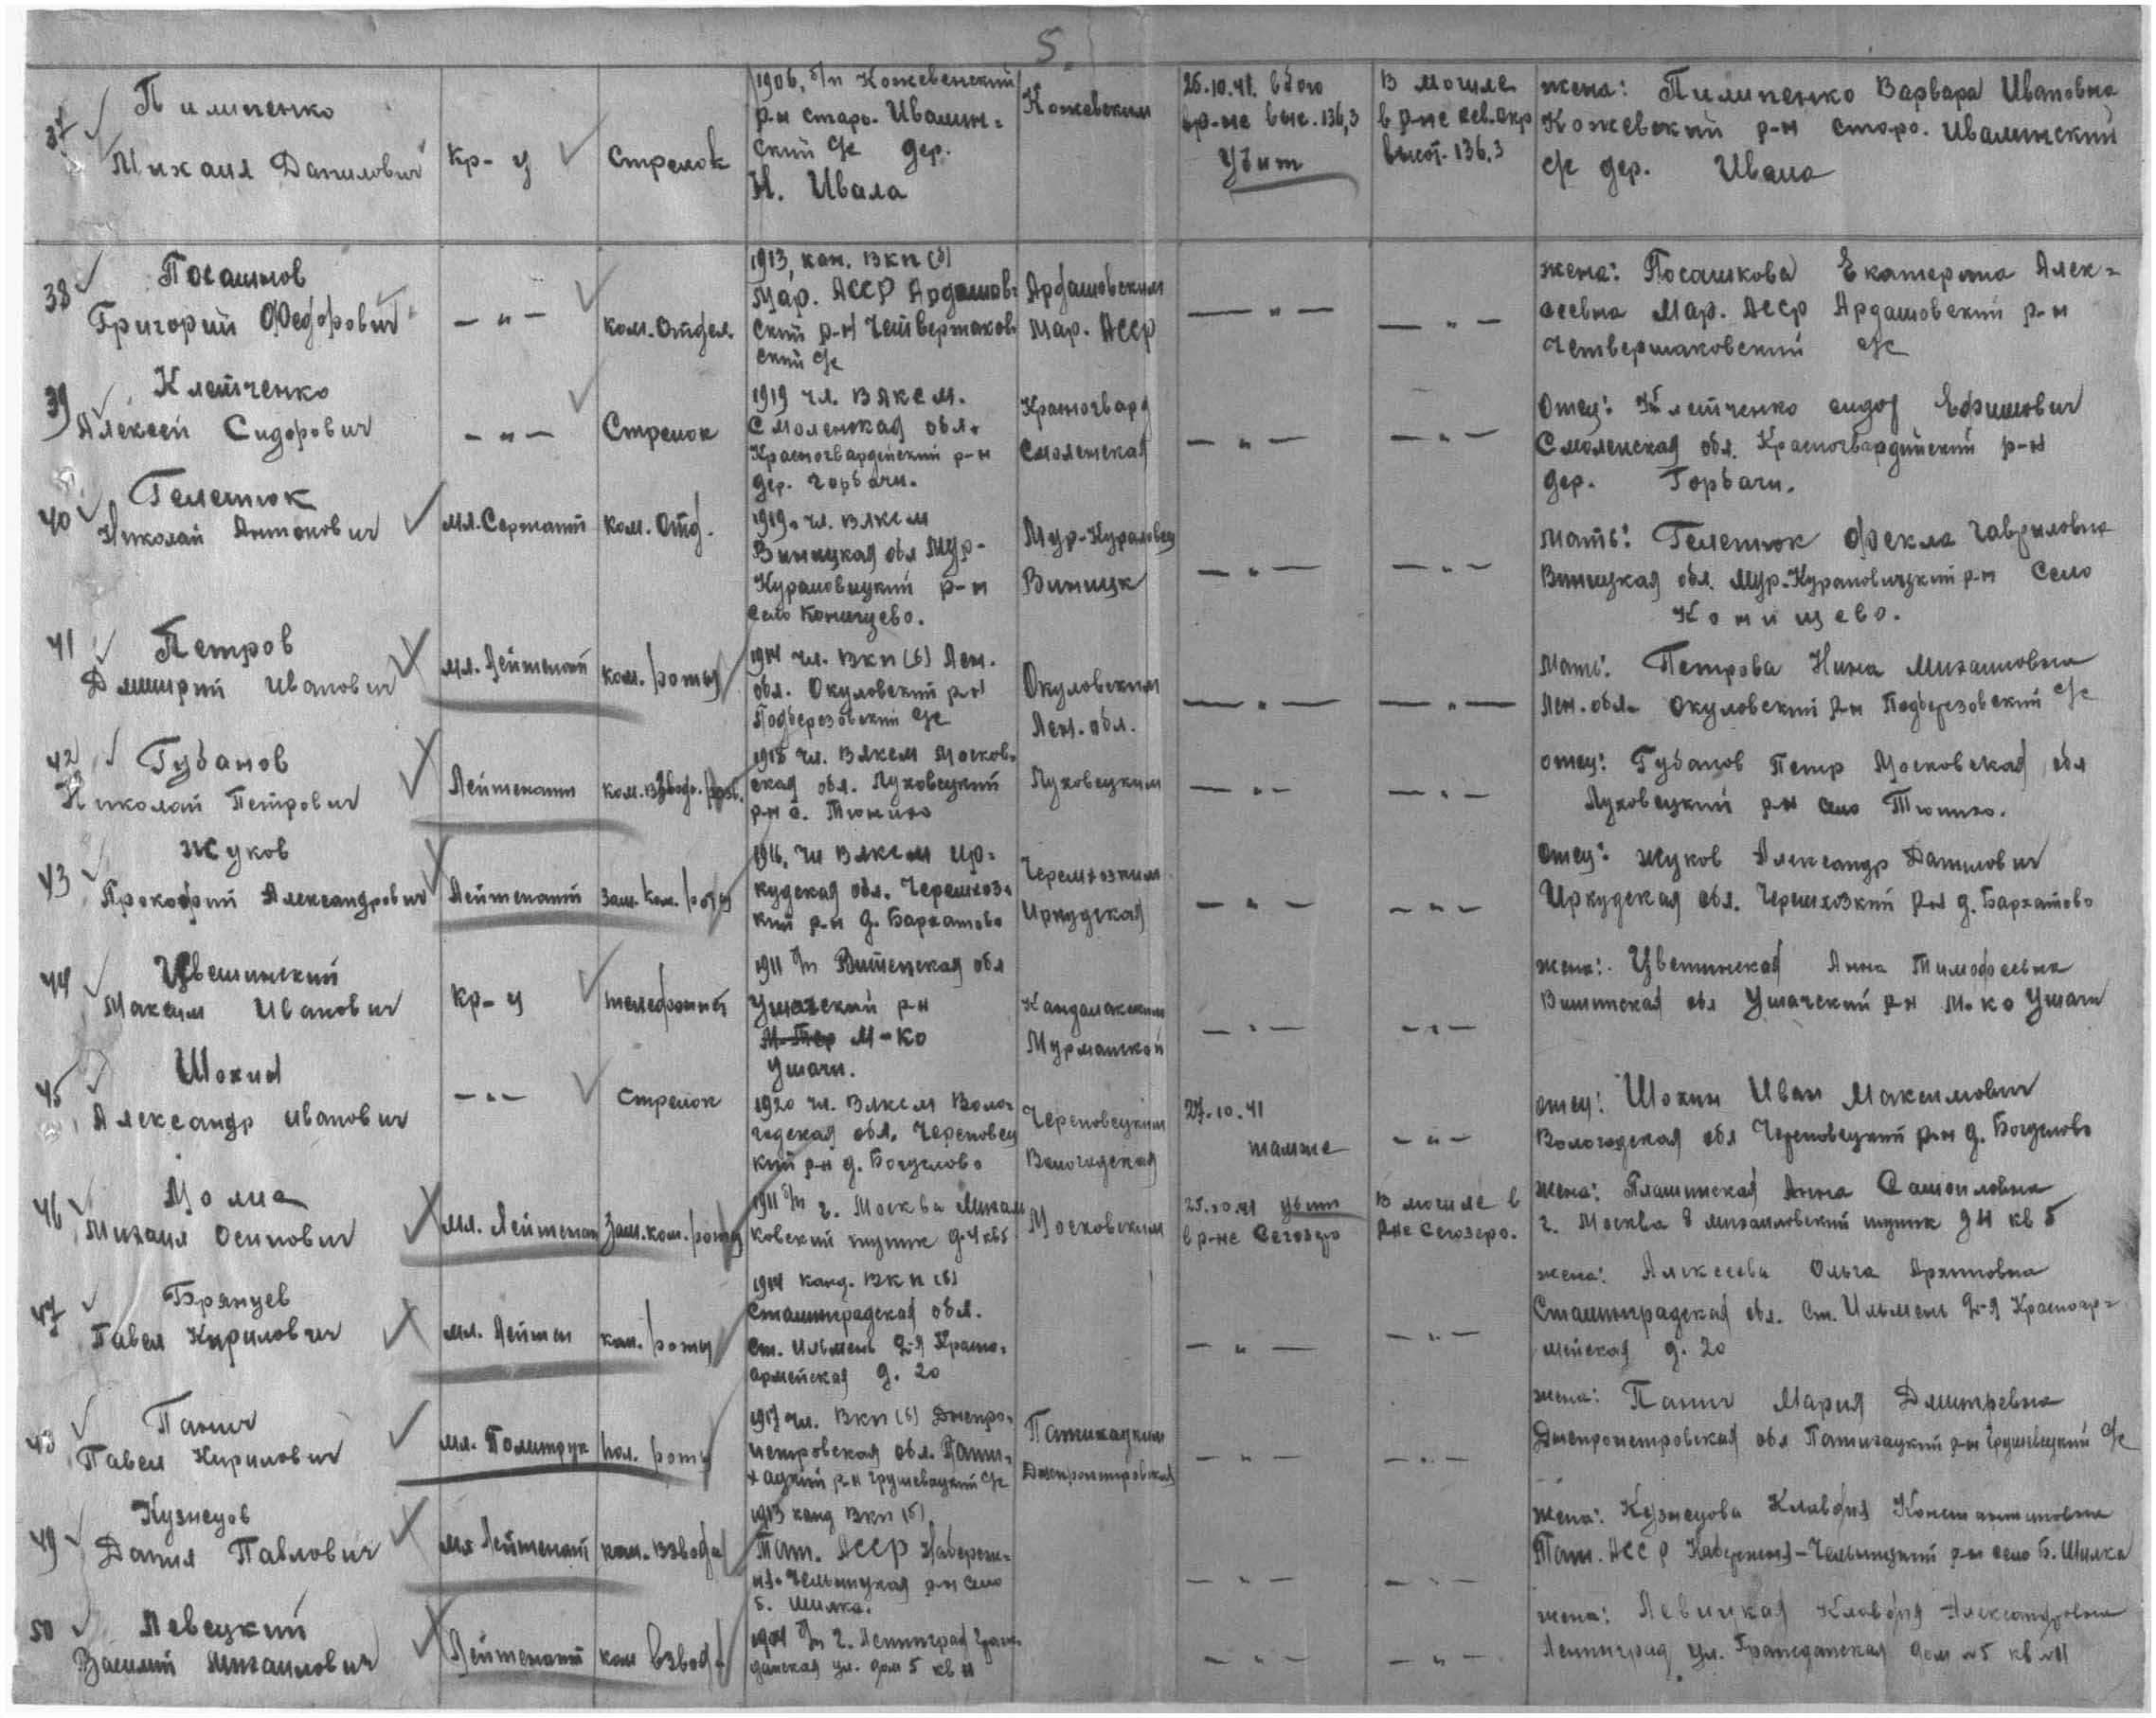 5.
37
Пилипенко
Михаил Данилович
Кр-ц
Стрелок
1906, б/п Кожевенский
р-н старо-Ивалин-
ский с/с дер.
Н. Ивала
Кожевским
25.10.41. в бою
в р-не выс. 136,3
Убит
В могиле
в р-не сев. окр
высот. 136,3
жена: Пилипенко Варвара Ивановна
Кожевский р-н старо. Ивалинский
с/с дер. Ивала
38
Посашков
Григорий Федорович
— " —
ком. Отдел.
1913, кан. ВКП(б)
Мар. АССР Ардашов-
ский р-н Четвертаков-
ский с/с
Ардашовским
Мар. АССР
— " —
— " —
жена: Посашкова Екатерина Алек-
сеевна Мар. АССР Ардашовский р-н
Четвертаковский с/с
39
Клетченко
Алексей Сидорович
— " —
Стрелок
1919 чл. ВЛКСМ.
Смоленская обл.
Красногвардейский р-н
дер. Горбачи.
Красногвард
Смоленская
— " —
— " —
Отец: Клетченко Сидор Ефимович
Смоленская обл. Красногвардейский р-н
дер. Горбачи.
40
Гелетюк
Николай Антонович
Мл. Сержант
ком. Отд.
1919. чл. ВЛКСМ
Виницкая обл Мур-
Кураловицкий р-н
село Конищево.
Мур-Кураловец
Виницк
— " —
— " —
Мать: Гелетюк Фекла Гавриловна
Виницкая обл. Мур-Курановицкий р-н Село
Конищево.
41
Петров
Дмитрий Иванович
Мл. Лейтенант
ком. роты
1914 чл. ВКП(б) Лен.
обл. Окуловский р-н
Подберезовский с/с
Окуловским
Лен. обл.
— " —
— " —
Мать: Петрова Нина Михайловна
Лен. обл. Окуловский р-н Подберезовский с/с
42
Губанов
Николай Петрович
Лейтенант
ком. взвода
1918 чл. ВЛКСМ Москов-
ская обл. Луховецкий
р-н с. Тюнино
Луховецким
— " —
— " —
отец: Губанов Петр Московская обл
Луховецкий р-н село Тюнино.
43
Жуков
Прокофий Александрович
Лейтенант
Зам. ком. роты
1916, чл ВЛКСМ Ир-
кудская обл. Черемхоз-
кий р-н д. Бархатово
Черемхозким
Иркудская
— " —
— " —
Отец: Жуков Александр Данилович
Иркудская обл. Черемхозкий р-н д. Бархатово
44
Цветинский
Максим Иванович
Кр-ц
телефонист
1911 б/п Витенская обл
Ушачский р-н
М-ко
Ушачи.
Кандалакским
Мурманской
— " —
— " —
жена: Цветинская Анна Тимофеевна
Витинская обл Ушачский р-н М-ко Ушачи
45
Шохин
Александр Иванович
— " —
Стрелок
1920 чл. ВЛКСМ Воло-
годская обл. Череповец
кий р-н д. Богуслово
Череповецким
Вологодская
27.10.41
там же
— " —
отец: Шохин Иван Максимович
Вологодская обл Череповецкий р-н д. Богуслово
46
Михаил Осипович
Мл. Лейтенан
Зам. ком. роты
1911 б/п г. Москва Михай
ковский тупик д-4 кв 5
Московским
25.10.41 убит
в р-не Сегозеро
В могиле в
р-не Сегозеро.
жена: Плашинская Анна Самойловна
г. Москва 8 михайловский тупик д 4 кв 5
47
Брянцев
Павел Кирилович
мл. Лейтен
ком. роты
1914 канд. ВКП(б)
Сталинградская обл.
ст. Ильмень 2-я Красно-
армейская д. 20
— " —
— " —
жена: Алексеева Ольга Архиповна
Сталинградская обл. ст. Ильмень 2-я Красноар-
мейская д. 20
48
Панич
Павел Кирилович
мл. Политрук
пол. роты
1917 чл. ВКП(б) Днепро-
петровская обл. Пяти-
хадкий р-н Грушевацкий с/с
Пятихацким
Днепропетровская
— " —
— " —
жена: Панич Мария Дмитревна
Днепропетровская обл Пятихацкий р-н Грушевацкий с/с
49
Кузнецов
Данил Павлович
мл Лейтенант
ком. взвода
1913 канд ВКП(б)
Тат. АССР Набереж-
ня-Челнинская р-н село
Б. Шилка.
— " —
— " —
жена: Кузнецова Клавдия Константиновна
Тат. АССР Набережня-Челнинский р-н село Б. Шилка
50
Левецкий
Василий Михайлович
Лейтенант
ком взвода
1904 б/п г. Ленинград Граж-
данская ул. дом 5 кв 11
— " —
— " —
жена: Левицкая Клавдия Александровна
Ленинград ул. Гражданская дом №5 кв №11